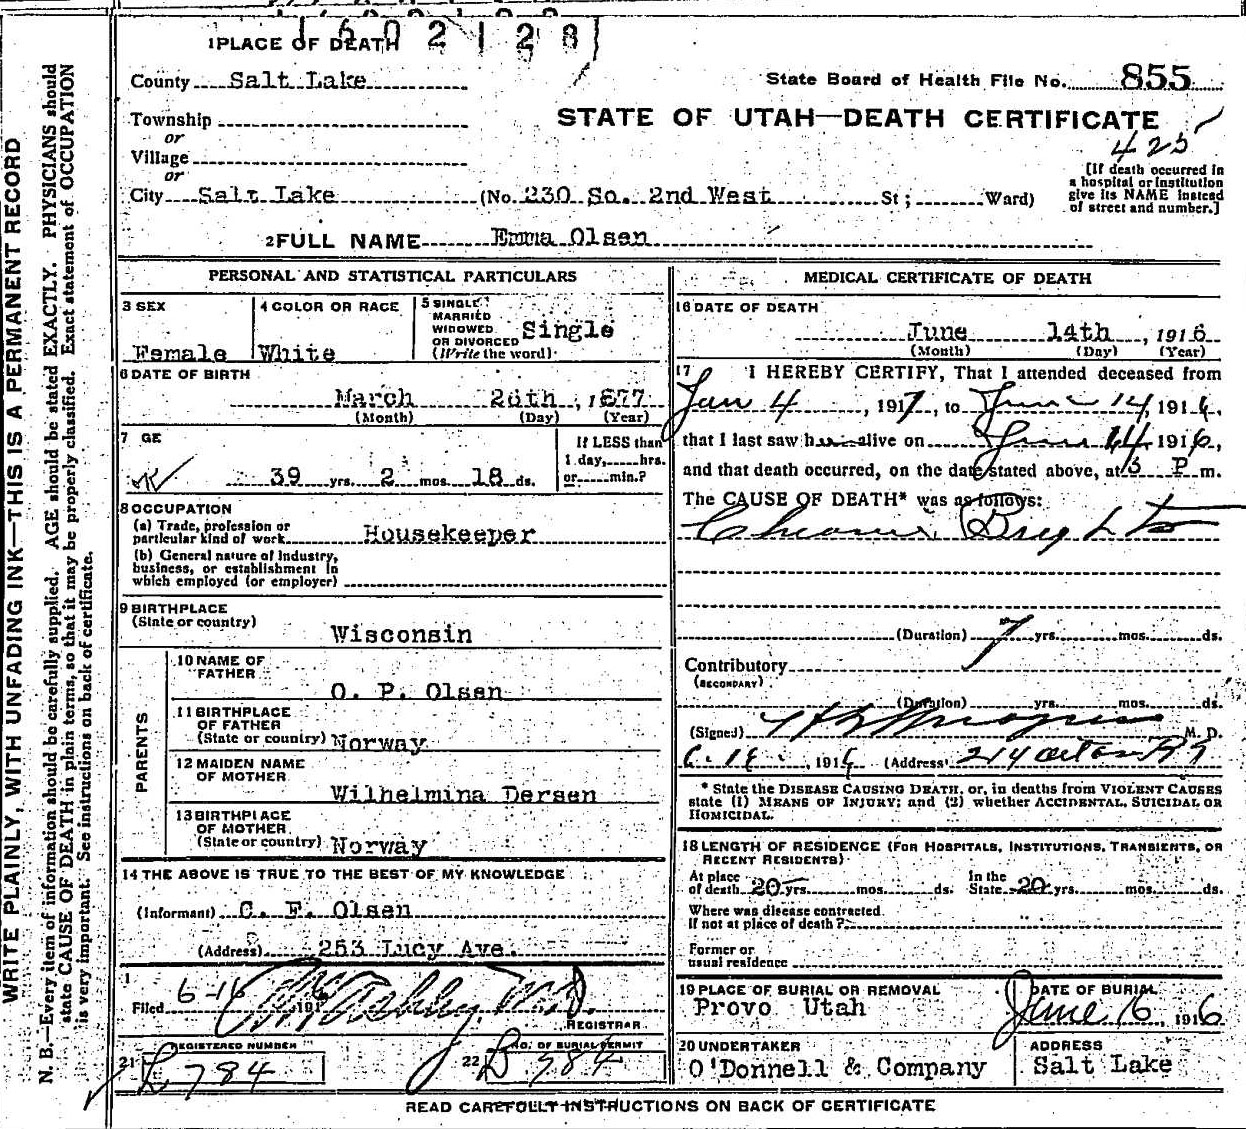 1602128
1 PLACE OF DEATH
County Salt Lake
State Board of Health File No. 855
Township
or
STATE OF UTAH—DEATH CERTIFICATE
425
Village
or
City Salt Lake (No. 230 So. 2nd West St ; Ward)
[If death occurred in
a hospital or institution
give its NAME instead
of street and number.]
2 FULL NAME Emma Olsen
PERSONAL AND STATISTICAL PARTICULARS
3 SEX
Female
4 COLOR OR RACE
White
5 SINGLE
MARRIED
WIDOWED
OR DIVORCED
(Write the word)
Single
6 DATE OF BIRTH
March 26th, 1877
(Month) (Day) (Year)
7 GE
39 yrs. 2 mos. 18 ds.
If LESS than
1 day, hrs.
or min.?
8 OCCUPATION
(a) Trade, profession or
particular kind of work Housekeeper
(b) General nature of Industry,
business, or establishment in
which employed (or employer)
9 BIRTHPLACE
(State or country)
Wisconsin
PARENTS
10 NAME OF
FATHER
O. P. Olsen
11 BIRTHPLACE
OF FATHER
(State or country) Norway
12 MAIDEN NAME
OF MOTHER
Wilhelmina Dersen
13 BIRTHPLACE
OF MOTHER
(State or country) Norway
14 THE ABOVE IS TRUE TO THE BEST OF MY KNOWLEDGE
(Informant) C. F. Olsen
(Address) 253 Lucy Ave.
Filed 6-16 1916 M.D.
REGISTRAR
REGISTERED NUMBER
21 L 784
NO. OF BURIAL PERMIT
22 B 784
MEDICAL CERTIFICATE OF DEATH
16 DATE OF DEATH
June 14th, 1916
(Month) (Day) (Year)
17 I HEREBY CERTIFY, That I attended deceased from
Jan 4, 1917, to June 14, 1916,
that I last saw h alive on June 14 1916,
and that death occurred, on the date stated above, at 3 P m.
The CAUSE OF DEATH* was as follows:
(Duration) 7 yrs. mos. ds.
Contributory
(SECONDARY)
(Duration) yrs. mos. ds.
(Signed) M. D.
1916 (Address) 214
* State the DISEASE CAUSING DEATH, or, in deaths from VIOLENT CAUSES
state (1) MEANS OF INJURY; and (2) whether ACCIDENTAL, SUICIDAL OR
HOMICIDAL.
18 LENGTH OF RESIDENCE (FOR HOSPITALS, INSTITUTIONS, TRANSIENTS, OR
RECENT RESIDENTS)
At place
of death 20 yrs. mos. ds.
In the
State 20 yrs. mos. ds.
Where was disease contracted
If not at place of death ?
Former or
usual residence
19 PLACE OF BURIAL OR REMOVAL
Provo Utah
DATE OF BURIAL
June 16, 1916
20 UNDERTAKER
O'Donnell & Company
ADDRESS
Salt Lake
READ CAREFULLY INSTRUCTIONS ON BACK OF CERTIFICATE
WRITE PLAINLY, WITH UNFADING INK—THIS IS A PERMANENT RECORD
N. B.—Every item of information should be carefully supplied. AGE should be stated EXACTLY. PHYSICIANS should
state CAUSE OF DEATH in plain terms, so that it may be properly classified. Exact statement of OCCUPATION
is very important. See instructions on back of certificate.